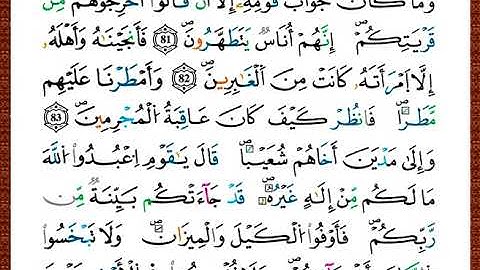 وَمَا كَانَ جَوَابَ قَوْمِهِۦٓ إِلَّآ أَن قَالُوٓا۟ أَخْرِجُوهُم مِّن
قَرْيَتِكُمْ ۖ إِنَّهُمْ أُنَاسٌ يَتَطَهَّرُونَ ۖ 81 فَأَنجَيْنَٰهُ وَأَهْلَهُۥٓ
إِلَّا ٱمْرَأَتَهُۥ كَانَتْ مِنَ ٱلْغَٰبِرِينَ ۖ 82 وَأَمْطَرْنَا عَلَيْهِم
مَّطَرًا ۖ فَانظُرْ كَيْفَ كَانَ عَاقِبَةُ ٱلْمُجْرِمِينَ ۖ 83
وَإِلَىٰ مَدْيَنَ أَخَاهُمْ شُعَيْبًا ۖ قَالَ يَٰقَوْمِ ٱعْبُدُوا۟ ٱللَّهَ
مَا لَكُم مِّنْ إِلَٰهٍ غَيْرُهُۥ ۖ قَدْ جَآءَتْكُم بَيِّنَةٌ مِّن
رَّبِّكُمْ ۖ فَأَوْفُوا۟ ٱلْكَيْلَ وَٱلْمِيزَانَ ۖ وَلَا تَبْخَسُوا۟